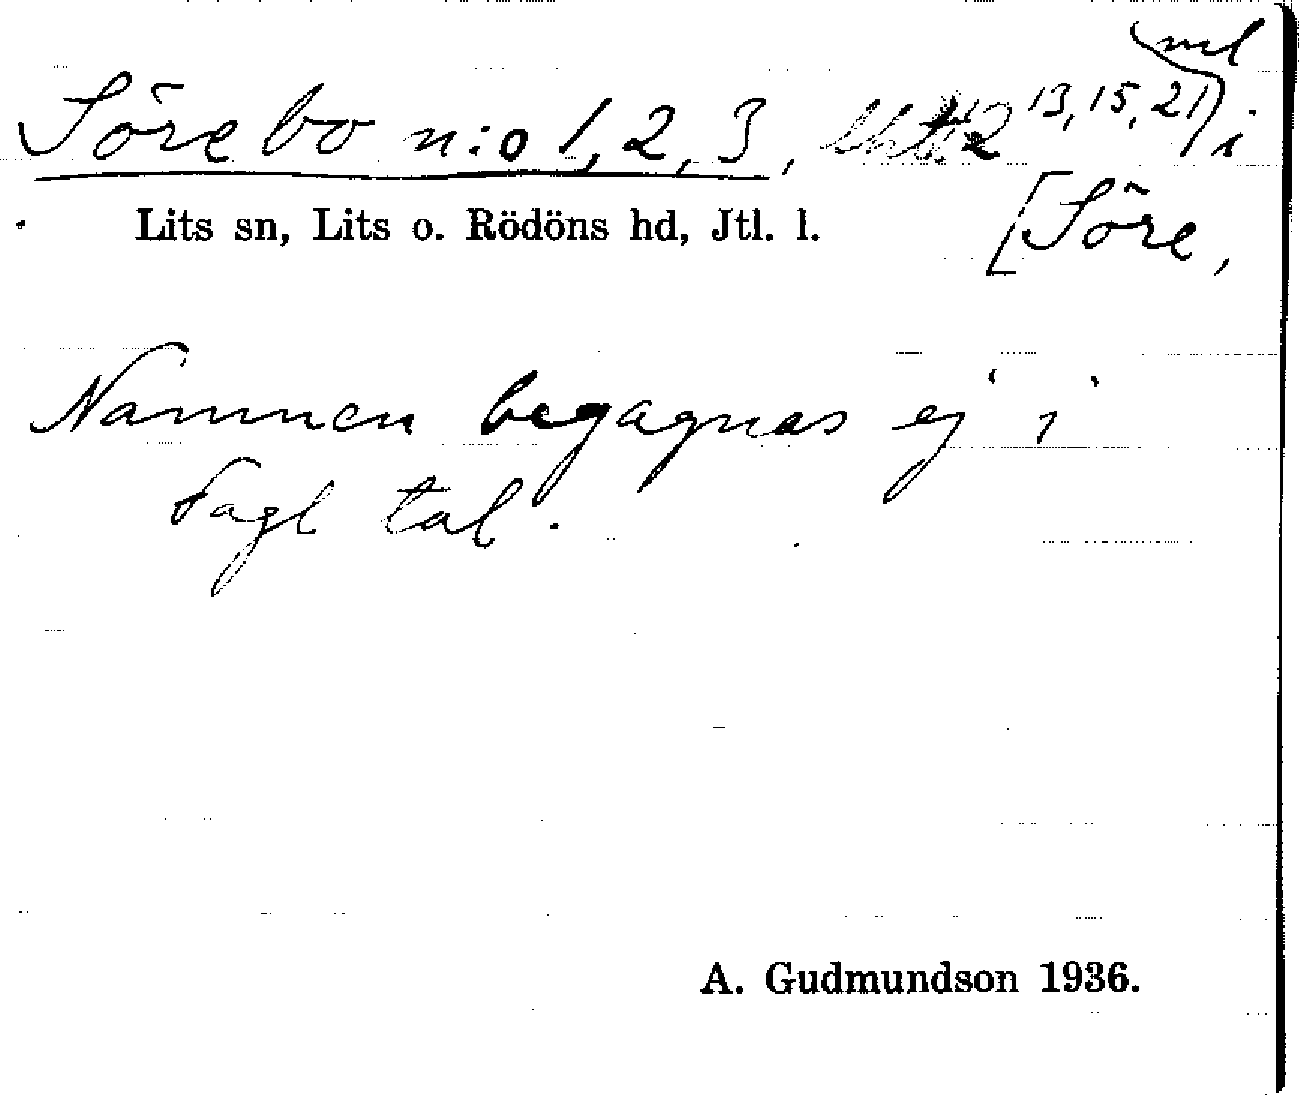 ml
Sörebo n:o 1, 2, 3, 2 13, 15, 21) i
Lits sn, Lits o. Rödöns hd, Jtl. l. [Söre,
Namnen begagnas ej i
dagl tal.
A. Gudmundson 1936.